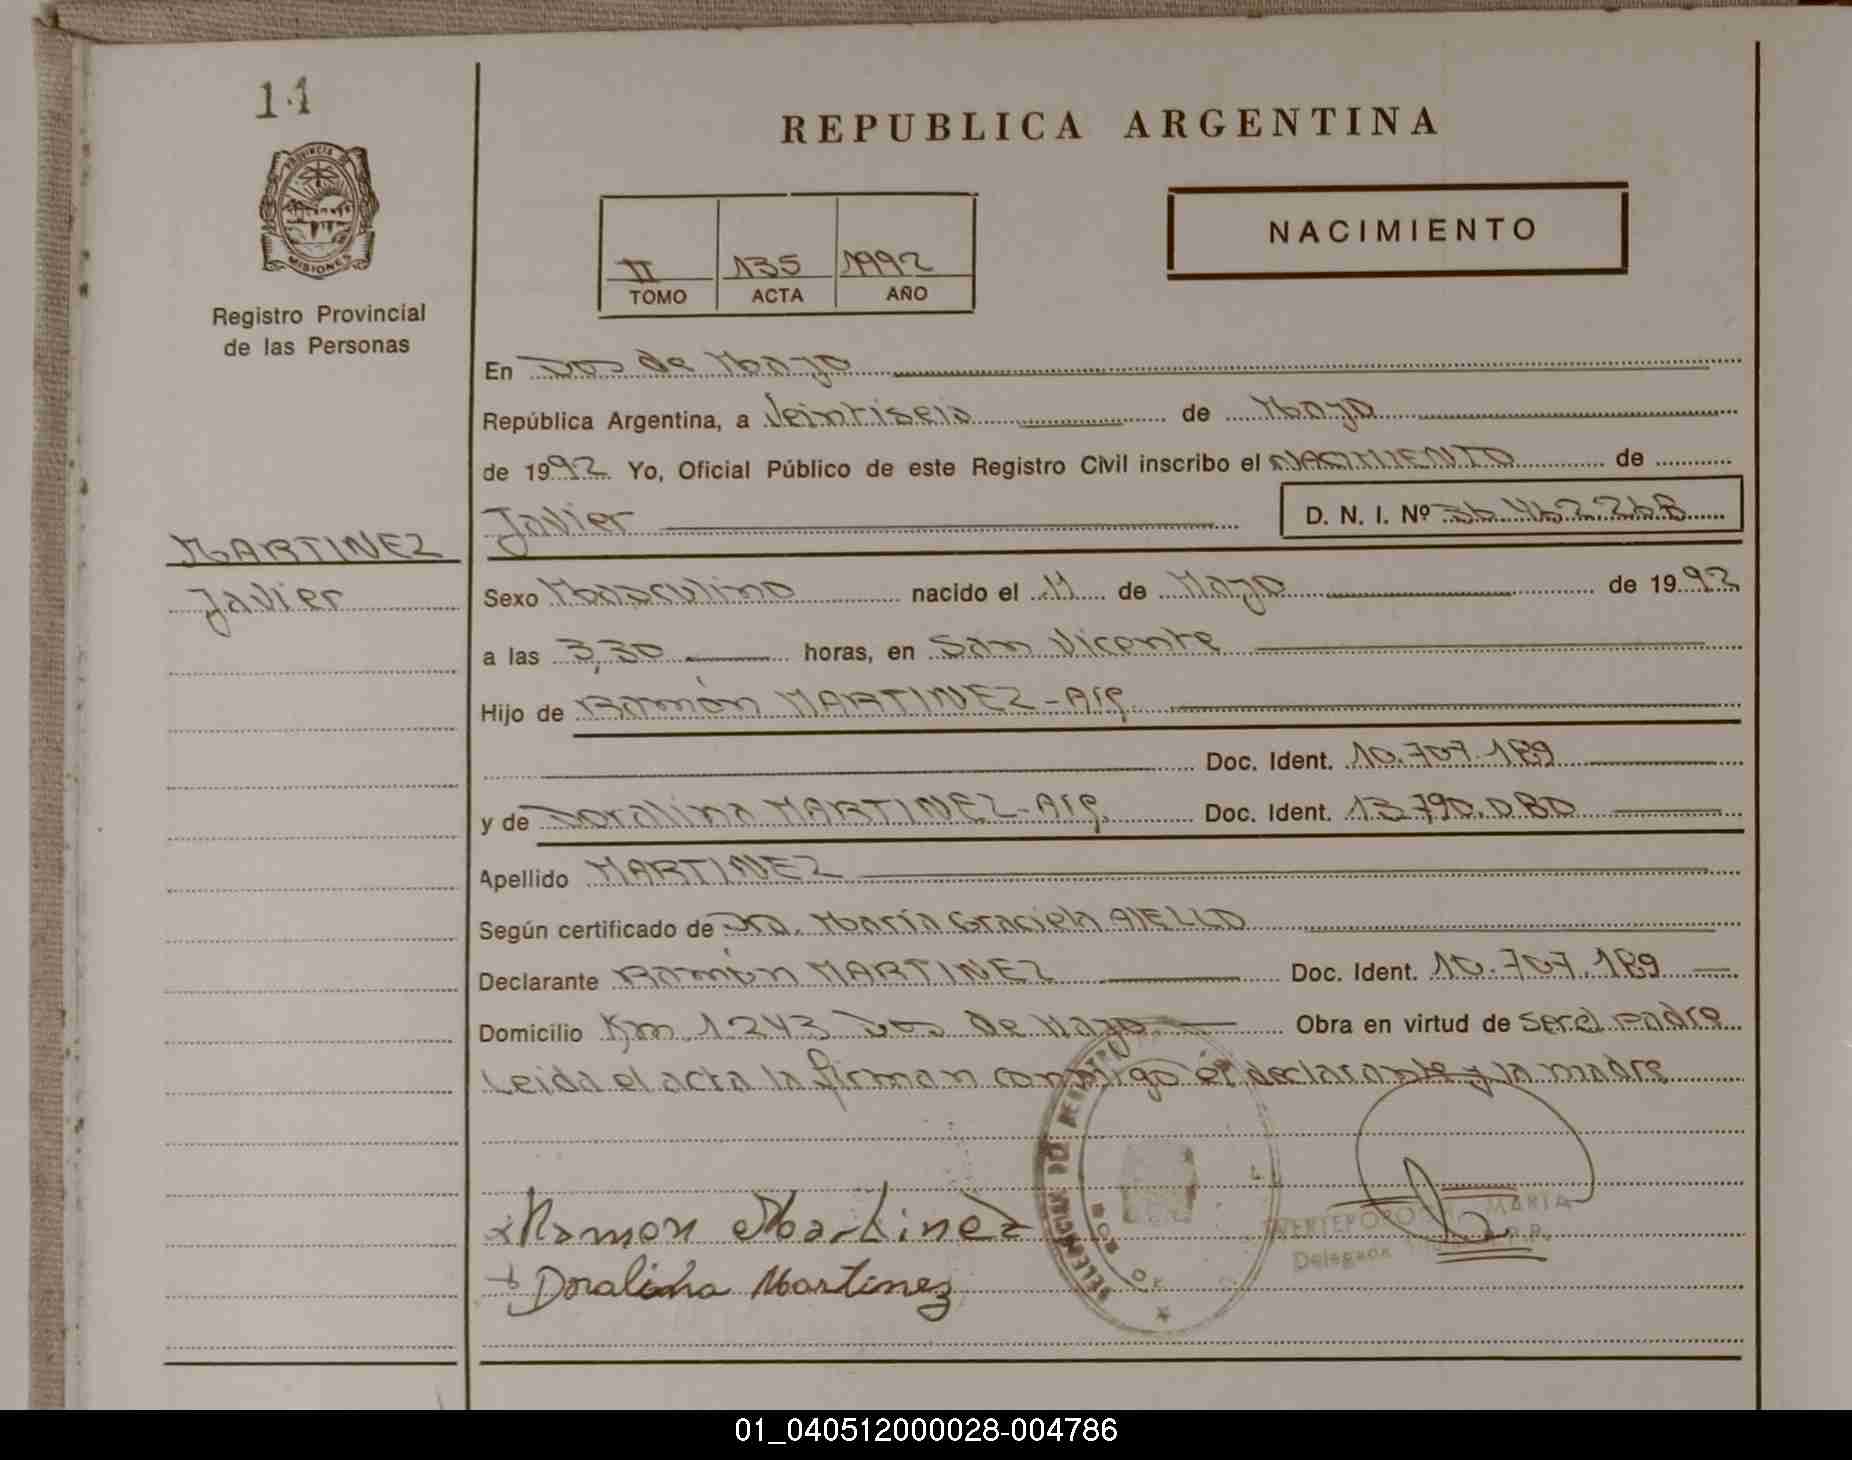 11
REPUBLICA ARGENTINA
PROVINCIA DE
MISIONES
Registro Provincial
de las Personas
II 135 1992
TOMO ACTA AÑO
NACIMIENTO
En Dos de Mayo
República Argentina, a Veintiseis de Mayo
de 1992 Yo, Oficial Público de este Registro Civil inscribo el NACIMIENTO de
Javier D. N. I. Nº 36.462.268
MARTINEZ
Javier
Sexo Masculino nacido el 11 de Mayo de 1992
a las 3,30 horas, en San Vicente
Hijo de Ramón MARTINEZ-Arg.
Doc. Ident. 10.707.189
y de Doralina MARTINEZ-Arg. Doc. Ident. 13.790.080
Apellido MARTINEZ
Según certificado de Dra. María Graciela AIELLO
Declarante Ramón MARTINEZ Doc. Ident. 10.707.189
Domicilio Km. 1243 Dos de Mayo Obra en virtud de ser el padre
Leida el acta la firman conmigo el declarante y la madre
Ramon Martinez
Doralina Martinez
MARIA
01_040512000028-004786